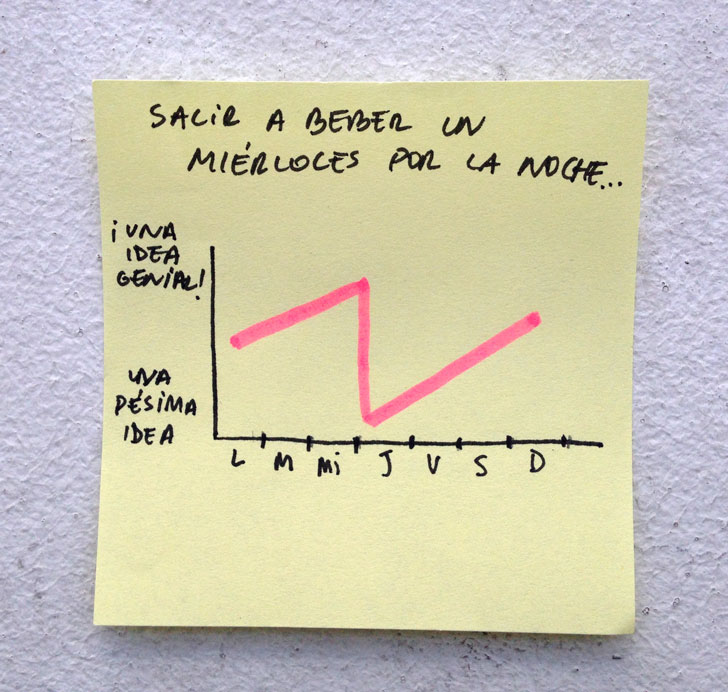 SALIR A BEBER UN
MIÉRLOCES POR LA NOCHE...
¡UNA
IDEA
GENIAL!
UNA
PÉSIMA
IDEA
L M Mi J V S D